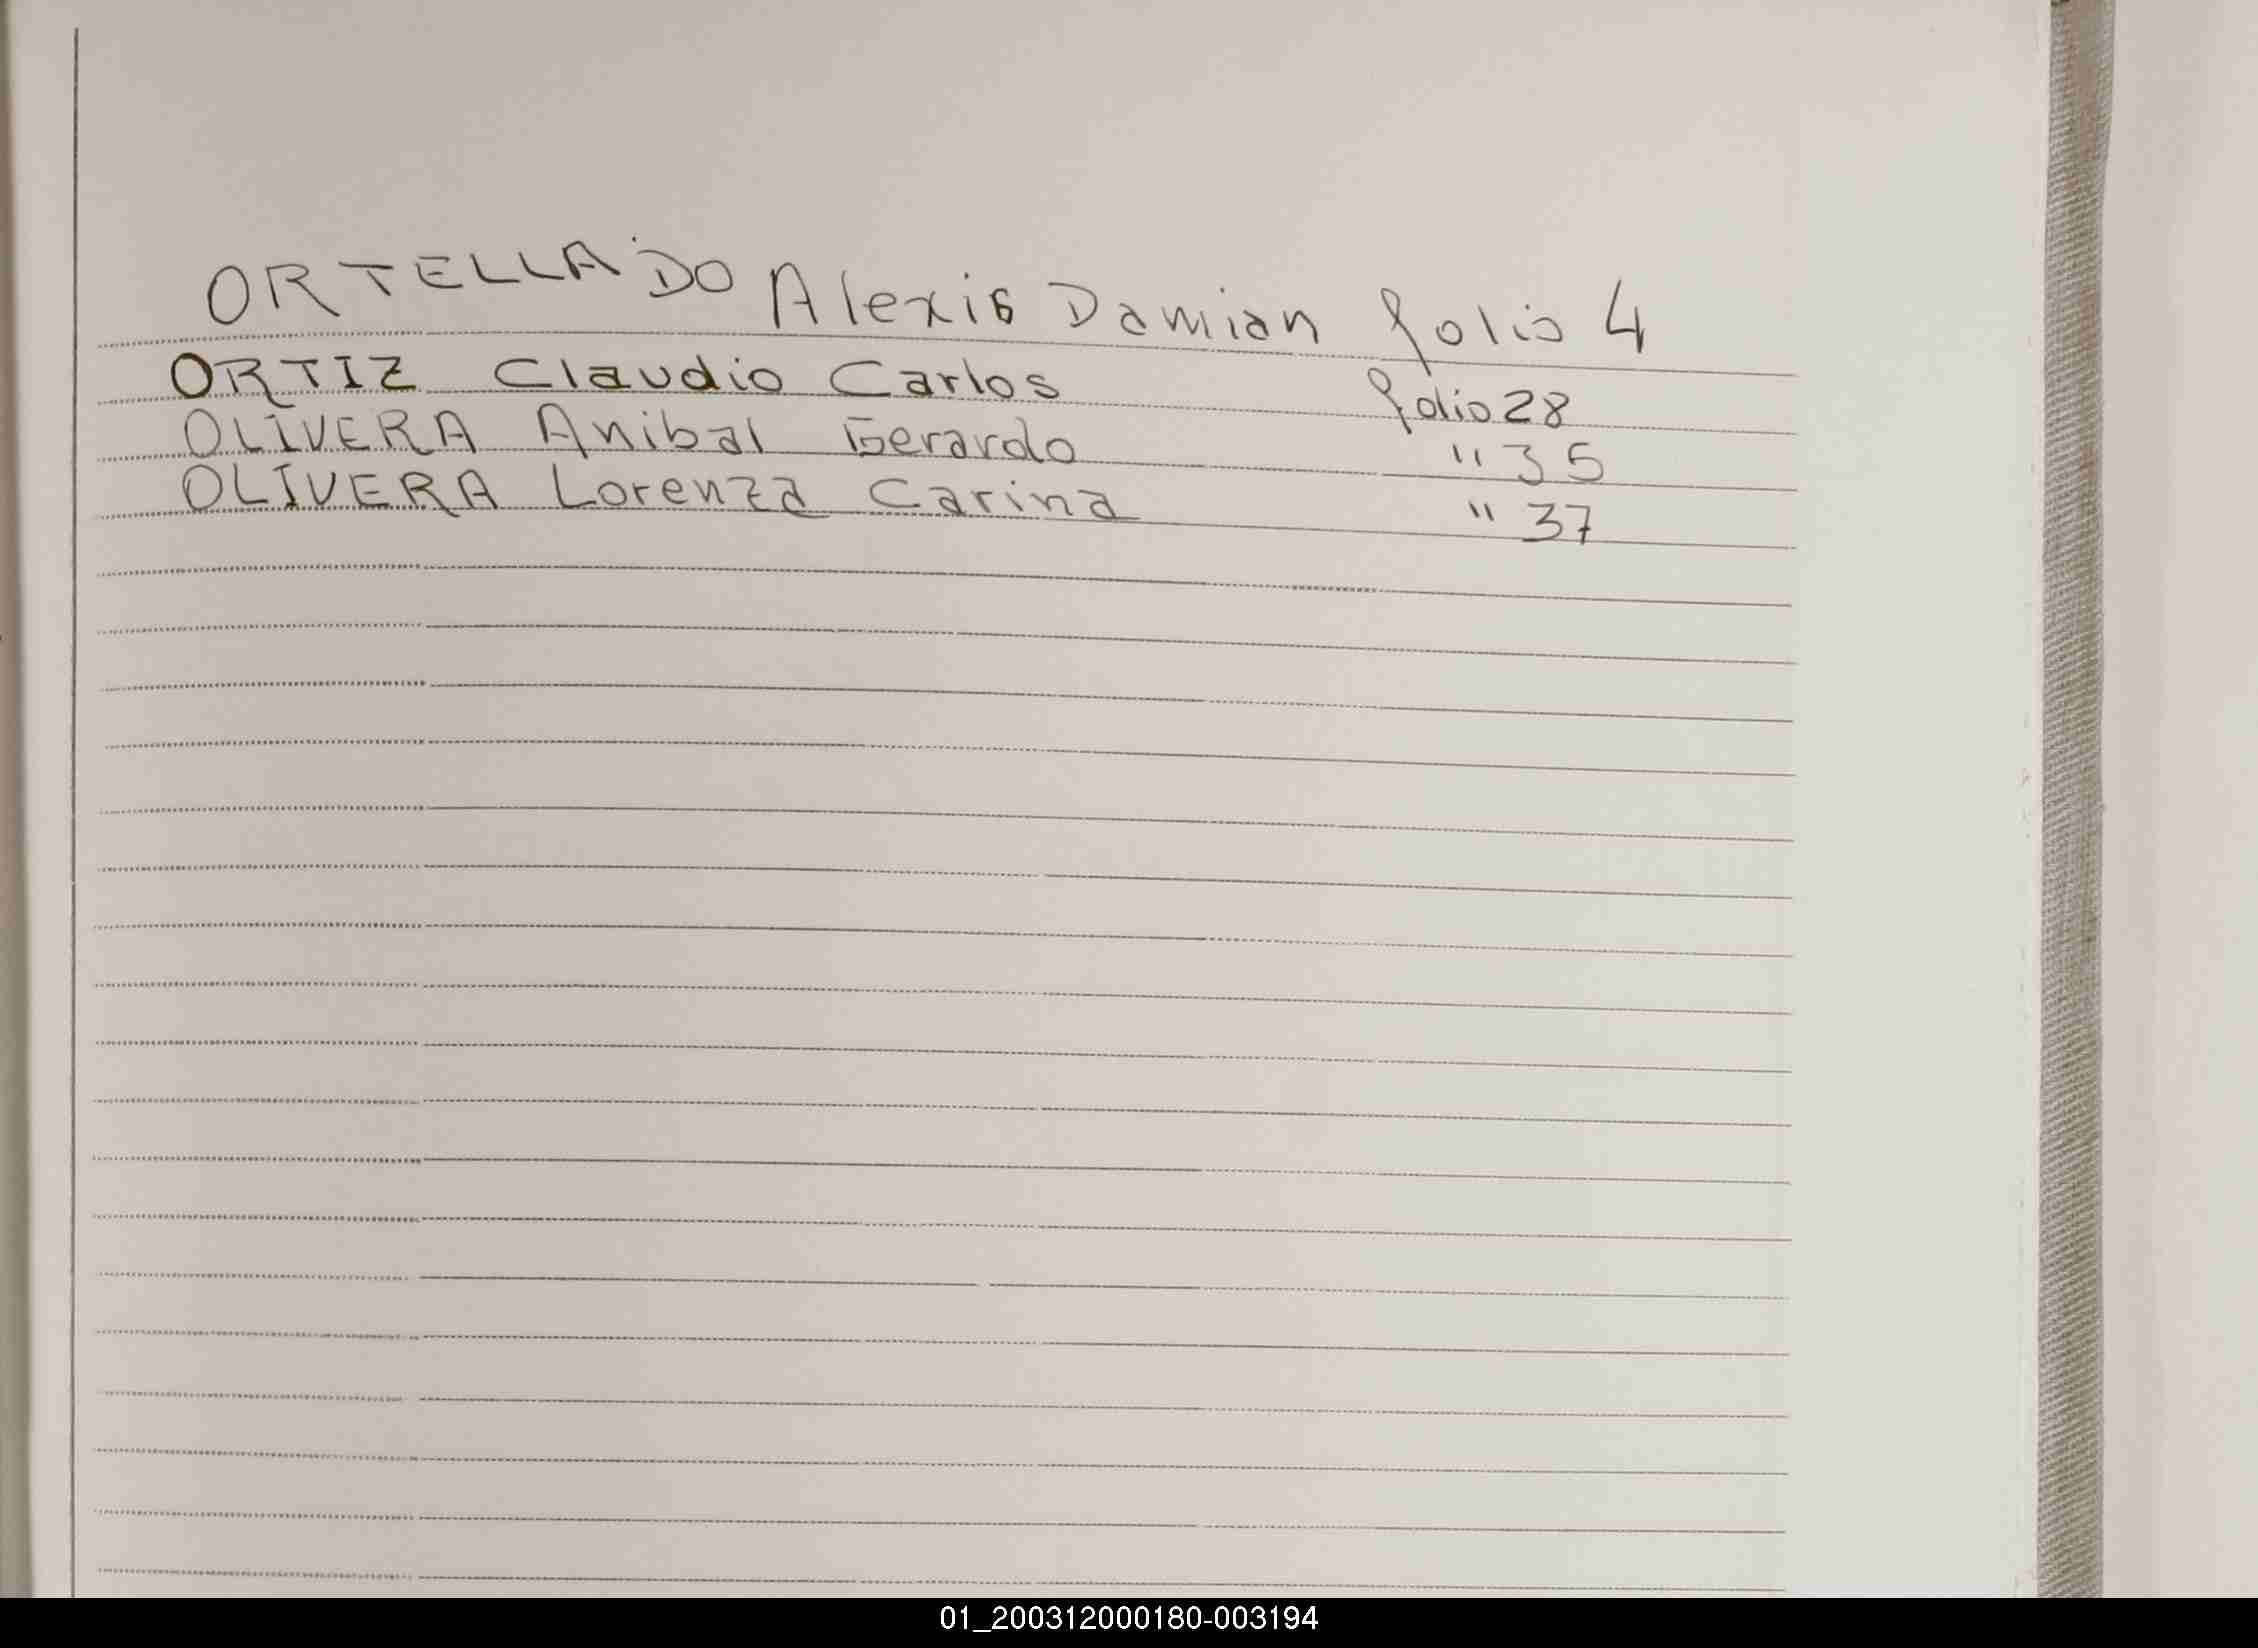 ORTELLADO Alexis Damian folio 4
ORTIZ Claudio Carlos folio 28
OLIVERA Anibal Gerardo " 35
OLIVERA Lorenza Carina " 37
01_200312000180-003194